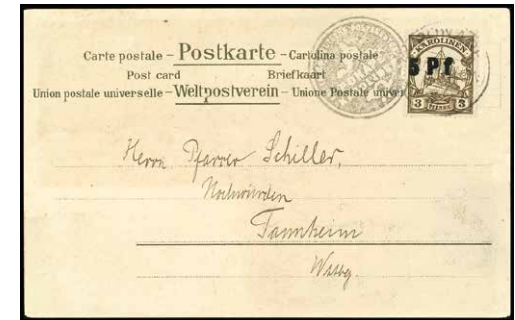 Carte postale – Postkarte – Cartolina postale
Post card Briefkaart
Union postale universelle – Weltpostverein – Unione Postale univer
KAROLINEN
5 Pf
3 PFENNIG 3
Herrn Pfarrer Schiller,
Tannheim
Wttbg.